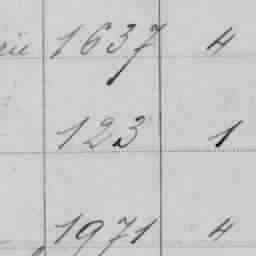 1637 4
123 1
1971 4